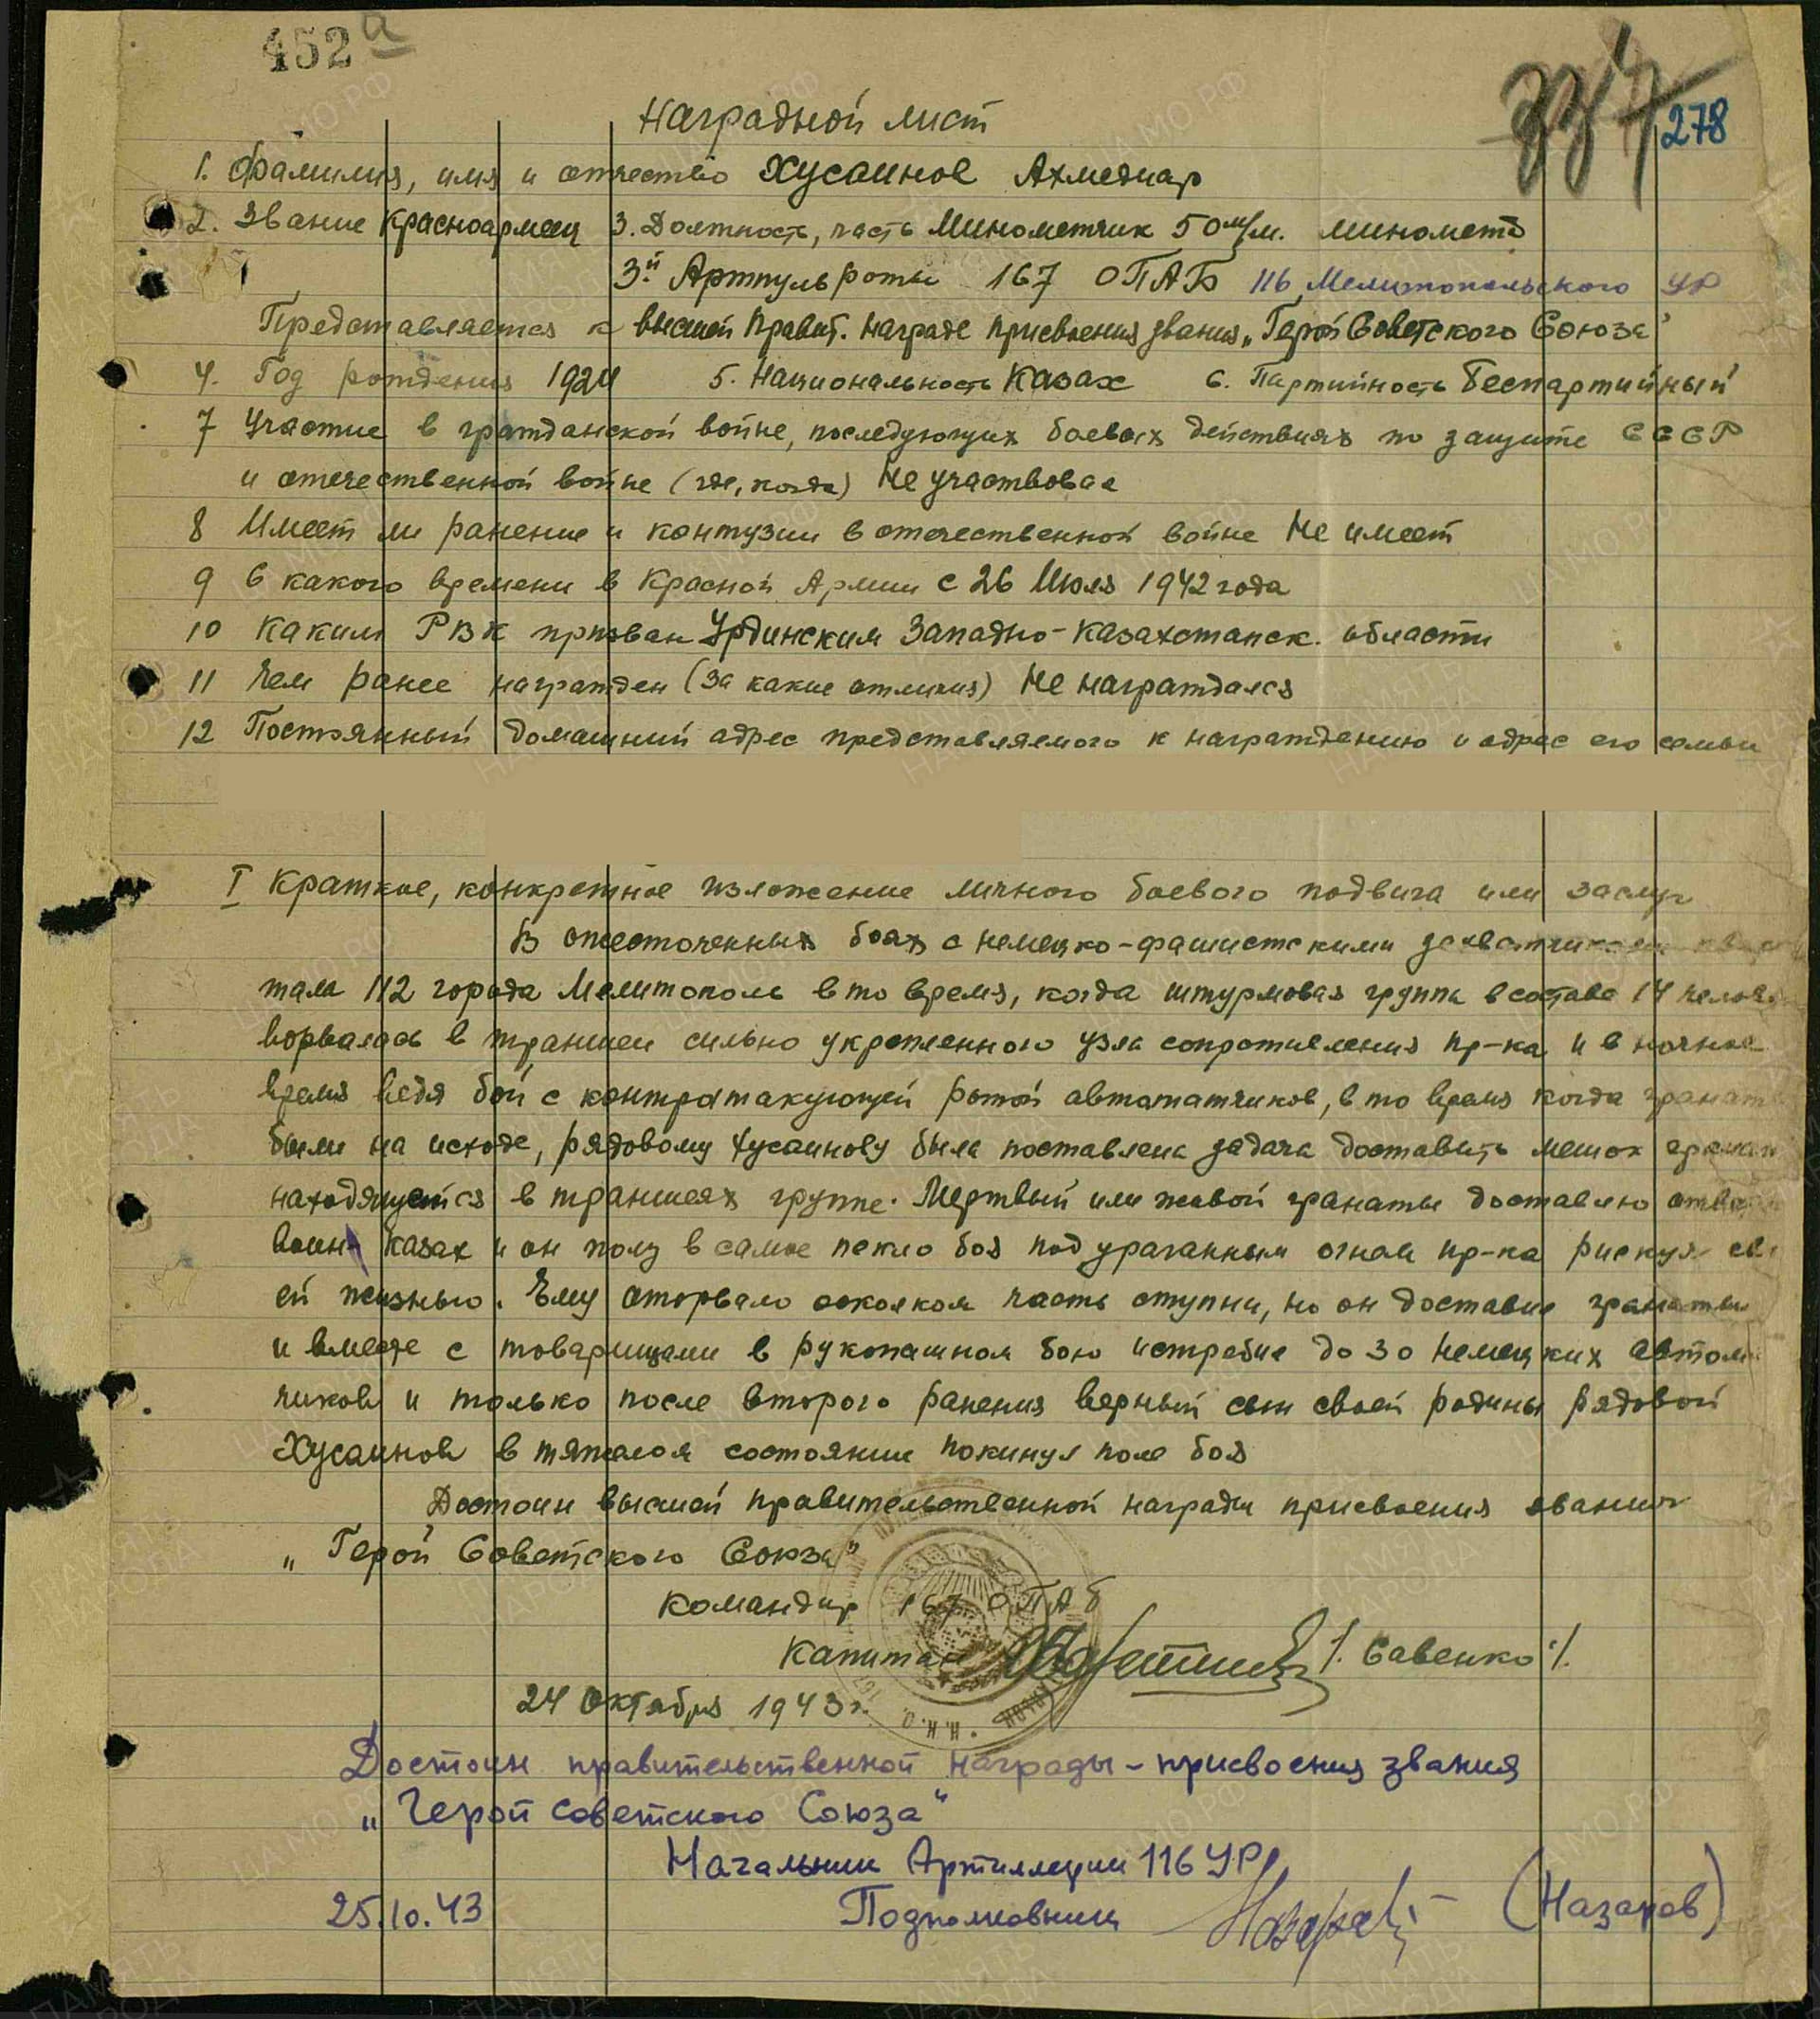 452 а
337
278
Наградной лист
1. Фамилия, имя и отчество Хусаинов Ахмедиар
2. Звание Красноармеец 3. Должность, часть Минометчик 50 м/м. миномета
3й Артпульроты 167 ОПАБ 116 Мелитопольского УР
Представляется к высшей Правит. награде присвоения звания „Герой Советского Союза"
4. Год рождения 1924 5. Национальность Казах 6. Партийность Беспартийный
7 Участие в гражданской войне, последующих боевых действиях по защите СССР
и отечественной войне (где, когда) Не участвовал
8 Имеет ли ранение и контузии в отечественной войне Не имеет
9 С какого времени в Красной Армии с 26 Июля 1942 года
10 Каким РВК призван Урдинским Западно-Казахстанск. области
11 Чем ранее награжден (за какие отличия) Не награждался
12 Постоянный домашний адрес представляемого к награждению и адрес его семьи
I Краткое, конкретное изложение личного боевого подвига или заслуг
В ожесточенных боях с немецко-фашистскими захватчиками
тала 112 города Мелитополь в то время, когда штурмовая группа в составе 14 челове
ворвалась в траншеи сильно укрепленного узла сопротивления пр-ка и в ночное
время ведя бой с контратакующей ротой автоматчиков, в то время когда гранаты
были на исходе, рядовому Хусаинову была поставлена задача доставить мешок гранат
находящейся в траншеях группе. Мертвый или живой гранаты доставлю
воин казах и он полз в самое пекло боя под ураганным огнем пр-ка рискуя сво
ей жизнью. Ему оторвало осколком часть ступни, но он доставил гранаты
и вместе с товарищами в рукопашном бою истребил до 30 немецких автомат
чиков и только после второго ранения верный сын своей родины рядовой
Хусаинов в тяжелом состоянии покинул поле боя
Достоин высшей правительственной награды присвоения звания
„Герой Советского Союза"
Командир 167 ОПАБ
Капитан /. Савенко ./.
24 Октября 1943 г.
Достоин правительственной награды - присвоения звания
„Герой Советского Союза"
Начальник Артиллерии 116 УР
25.10.43 Подполковник (Назаров)